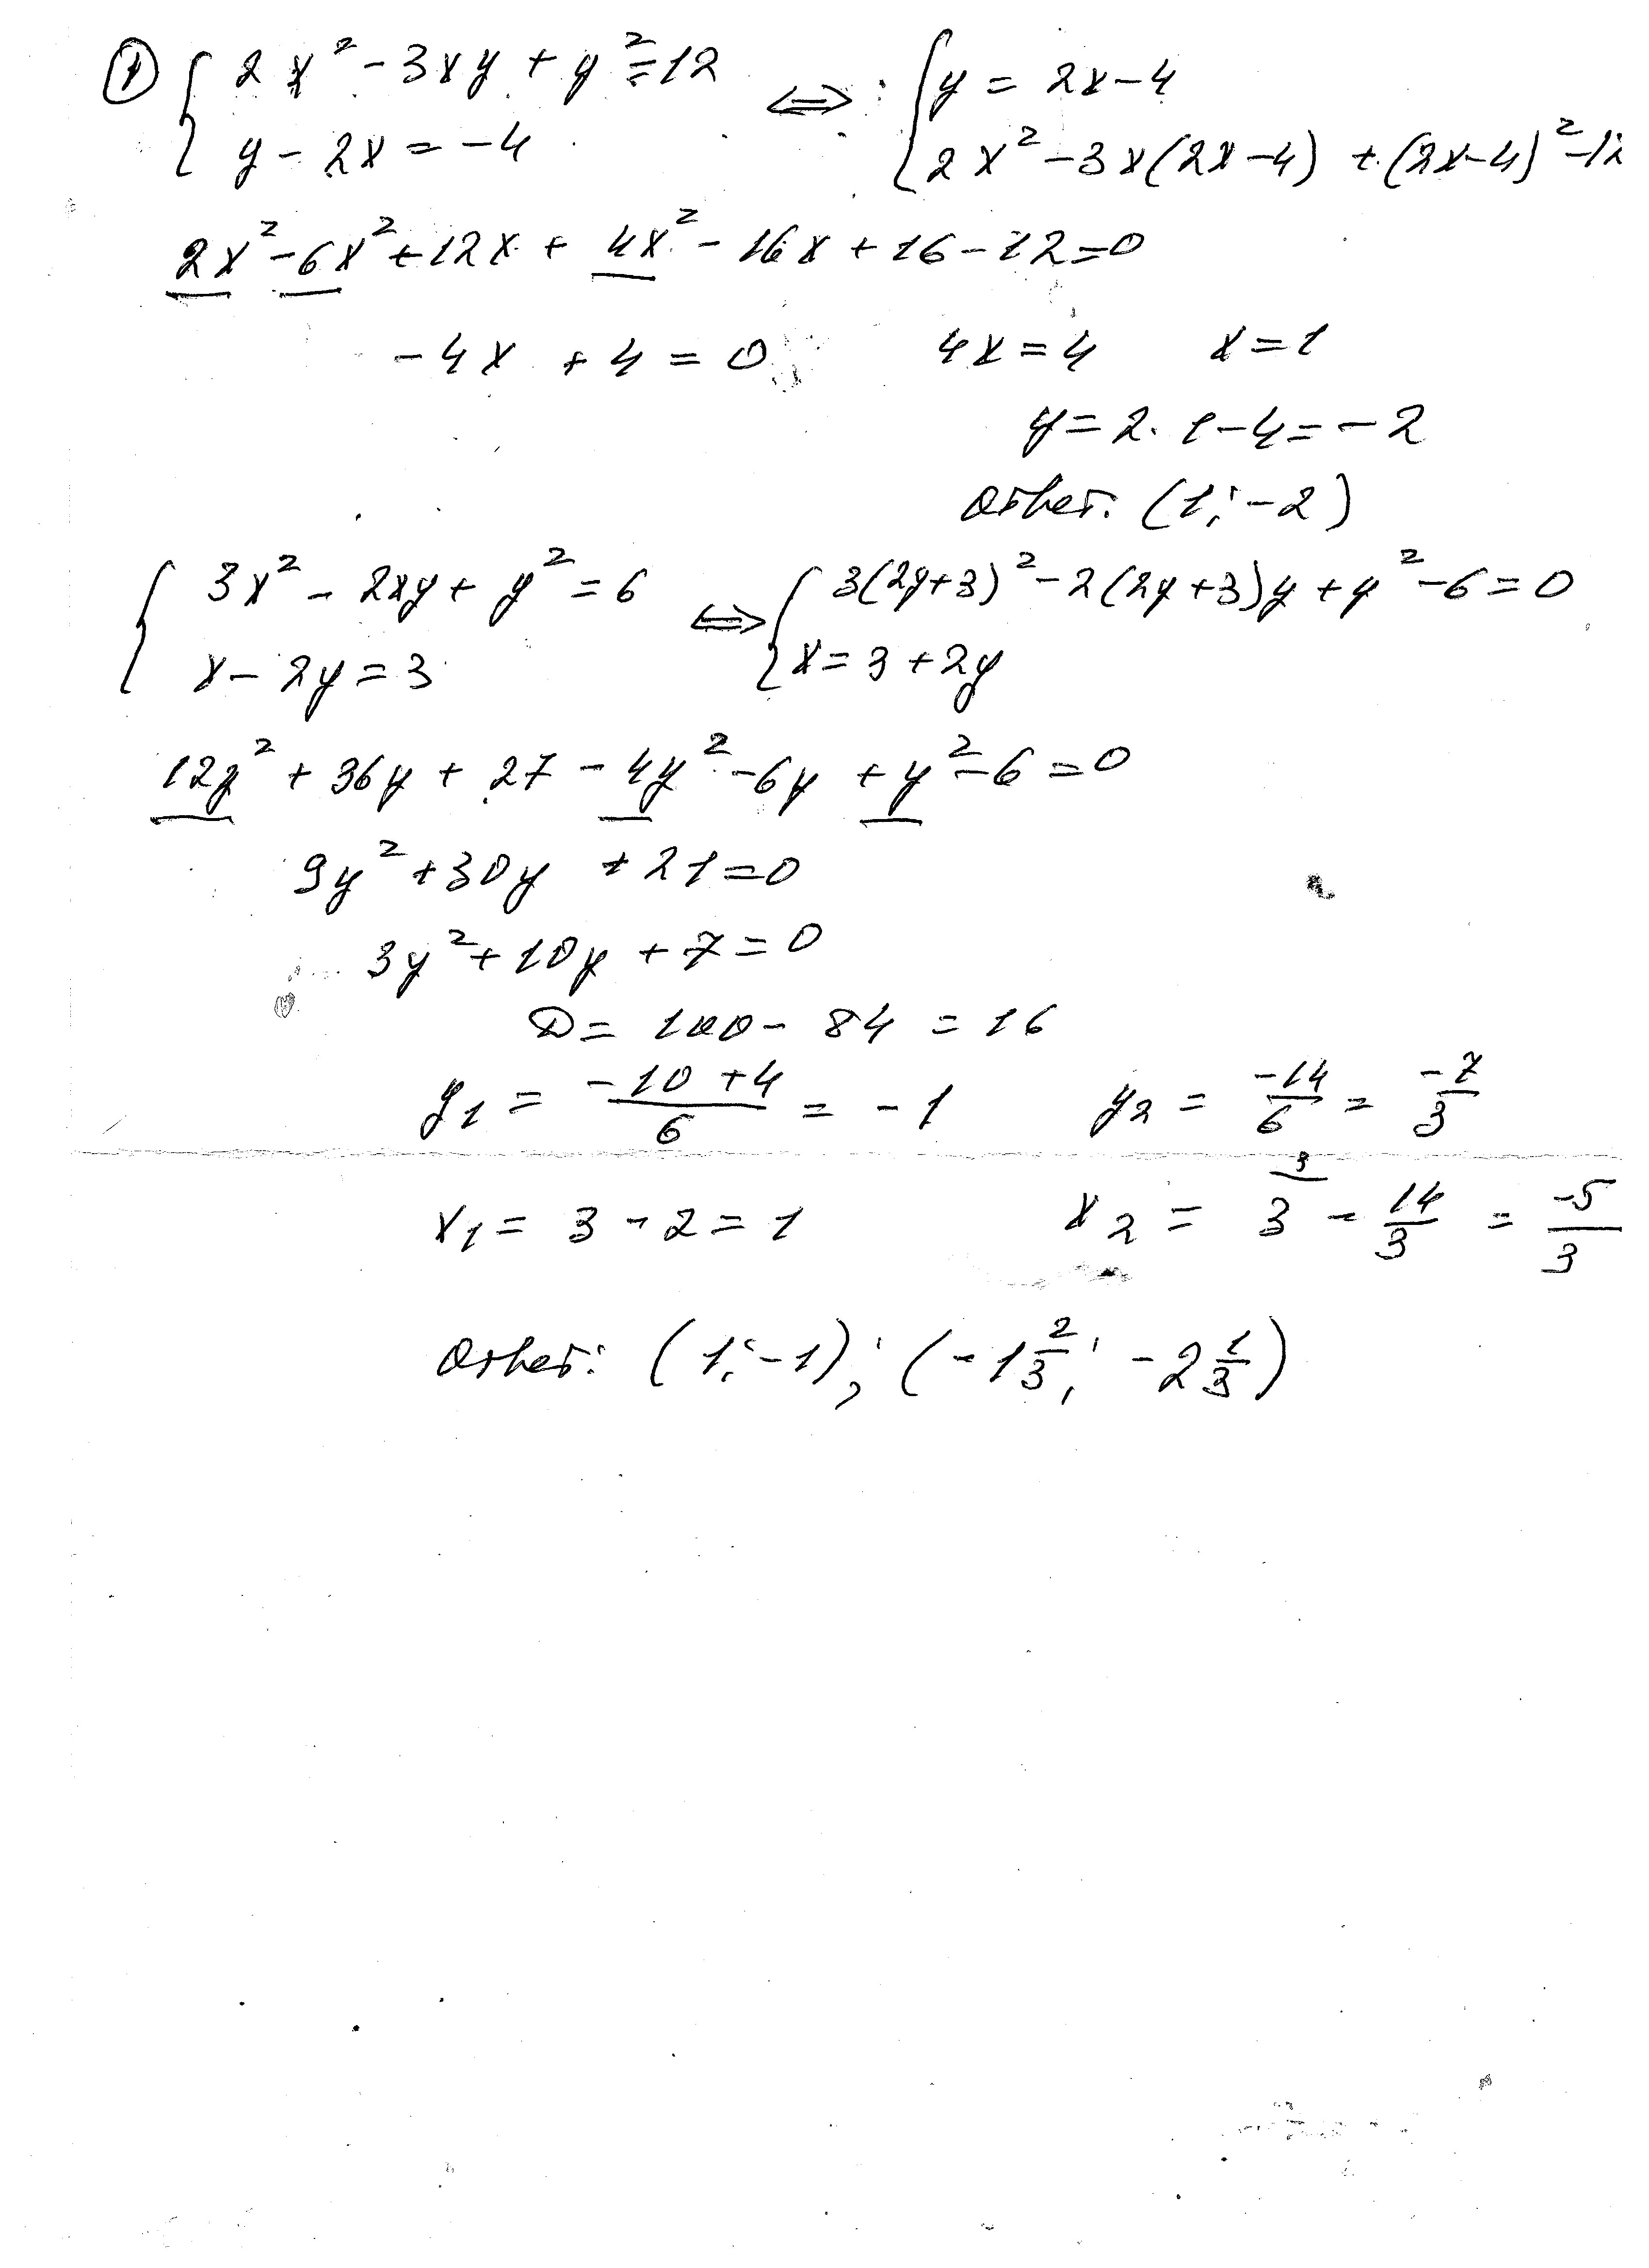 ① { 2x² - 3xy + y² = 12 ⇔ { y = 2x - 4
y - 2x = -4 2x² - 3x(2x-4) + (2x-4)² - 12
2x² - 6x² + 12x + 4x² - 16x + 16 - 12 = 0
-4x + 4 = 0 4x = 4 x = 1
y = 2 · 1 - 4 = -2
Ответ: (1; -2)
{ 3x² - 2xy + y² = 6 ⇔ { 3(2y+3)² - 2(2y+3)y + y² - 6 = 0
x - 2y = 3 x = 3 + 2y
12y² + 36y + 27 - 4y² - 6y + y² - 6 = 0
9y² + 30y + 21 = 0
3y² + 10y + 7 = 0
D = 100 - 84 = 16
y₁ = (-10 + 4)/6 = -1 y₂ = -14/6 = -7/3
x₁ = 3 - 2 = 1 x₂ = 3 - 14/3 = -5/3
Ответ: (1; -1); (-1 2/3; -2 1/3)